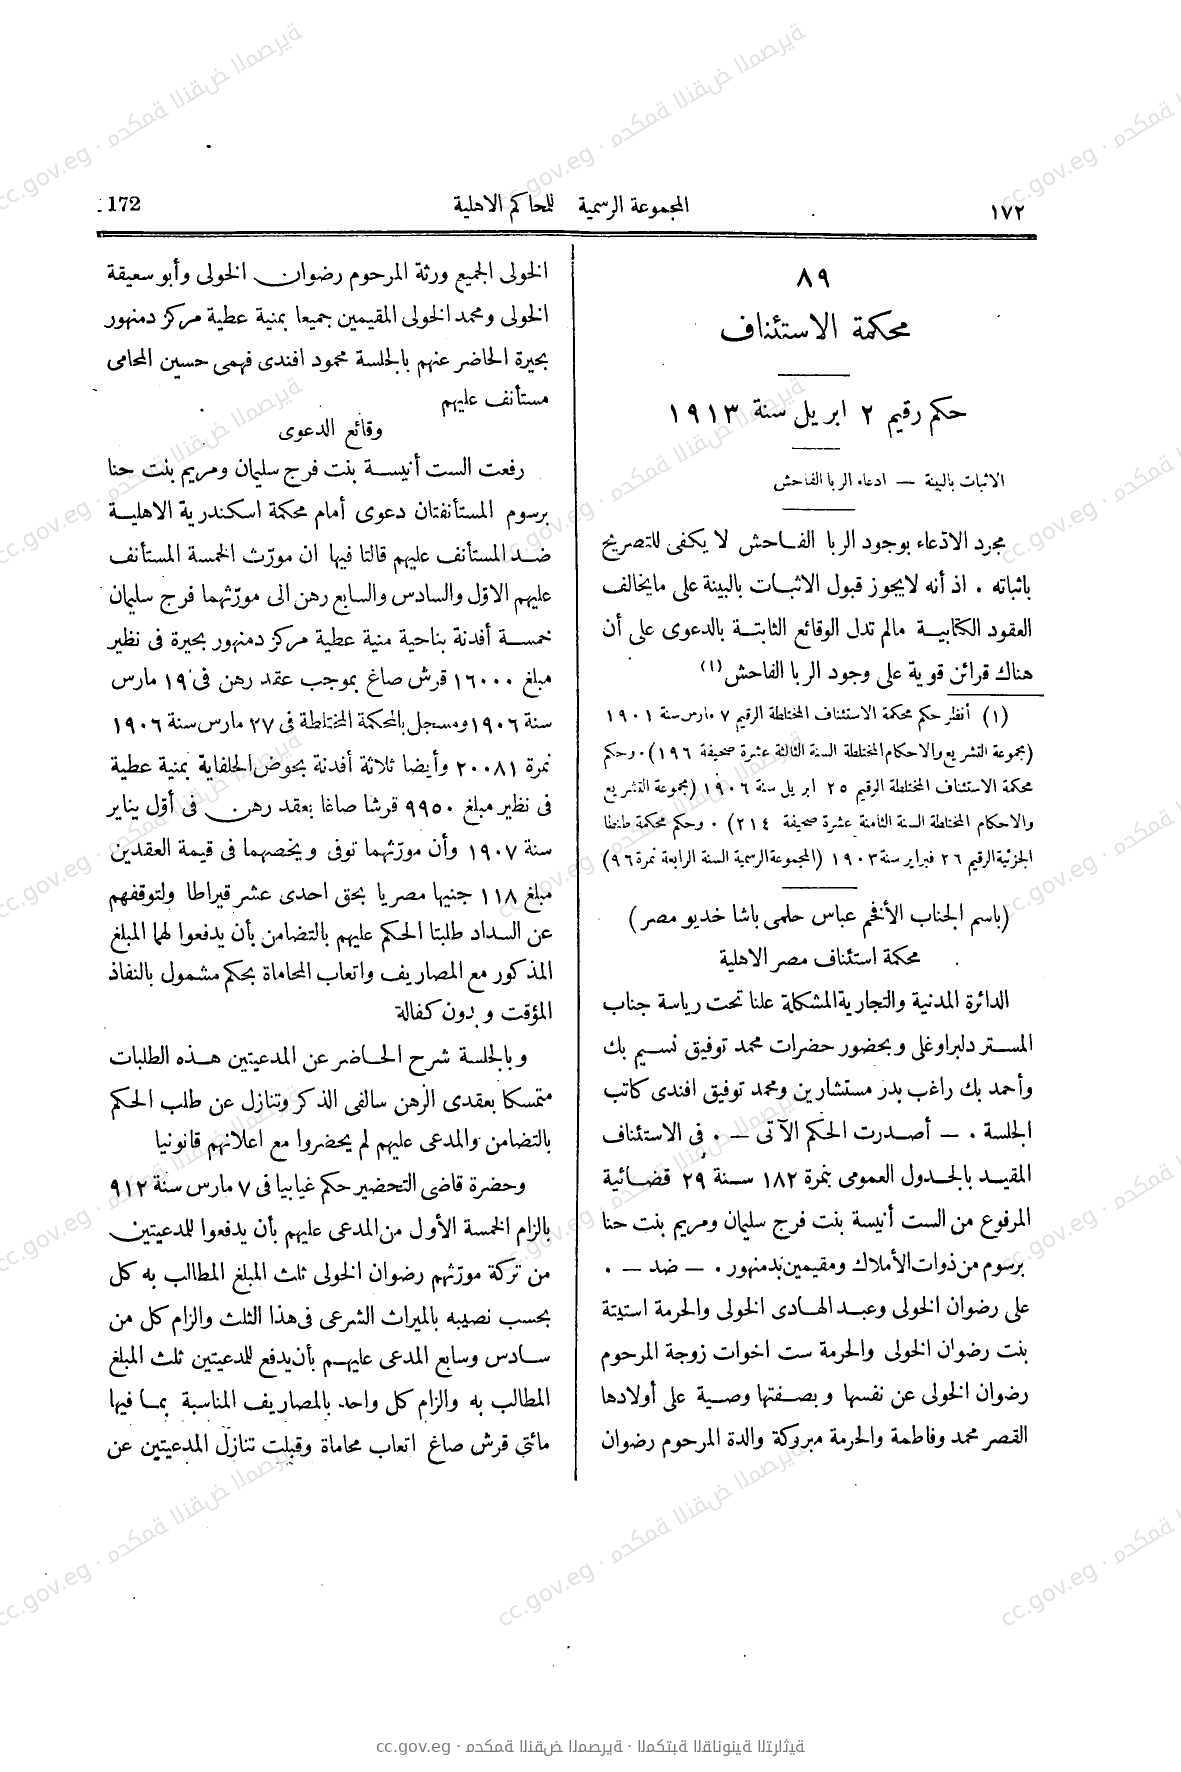 ١٧٢
المجموعة الرسمية للمحاكم الاهلية
172
٨٩
محكمة الاستئناف
حكم رقيم ٢ ابريل سنة ١٩١٣
الاثبات بالبينة — ادعاء الربا الفاحش
مجرد الادّعاء بوجود الربا الفاحش لا يكفى للتصريح
باثباته . اذ أنه لايجوز قبول الاثبات بالبينة على مايخالف
العقود الكتابية مالم تدل الوقائع الثابتة بالدعوى على أن
هناك قرائن قوية على وجود الربا الفاحش (١)
(١) أنظر حكم محكمة الاستئناف المختلطة الرقيم ٧ مارس سنة ١٩٠١
(مجموعة التشريع والاحكام المختلطة السنة الثالثة عشرة صحيفة ١٩٦) . وحكم
محكمة الاستئناف المختلطة الرقيم ٢٥ ابريل سنة ١٩٠٦ (مجموعة التشريع
والاحكام المختلطة السنة الثامنة عشرة صحيفة ٢١٤) . وحكم محكمة طنطا
الجزئية الرقيم ٢٦ فبراير سنة ١٩٠٣ (المجموعة الرسمية السنة الرابعة نمرة ٩٦)
(باسم الجناب الأفخم عباس حلمى باشا خديو مصر)
محكمة استئناف مصر الاهلية
الدائرة المدنية والتجارية المشكلة علنا تحت رياسة جناب
المستر دلبراوغلى وبحضور حضرات محمد توفيق نسيم بك
وأحمد بك راغب بدر مستشارين ومحمد توفيق افندى كاتب
الجلسة . — أصدرت الحكم الآتى — . فى الاستئناف
المقيد بالجدول العمومى بنمرة ١٨٢ سنة ٢٩ قضائية
المرفوع من الست أنيسة بنت فرج سليمان ومريم بنت حنا
برسوم من ذوات الأملاك ومقيمين بدمنهور . — ضد — .
على رضوان الخولى وعبد الهادى الخولى والحرمة استيتة
بنت رضوان الخولى والحرمة ست اخوات زوجة المرحوم
رضوان الخولى عن نفسها وبصفتها وصية على أولادها
القصر محمد وفاطمة والحرمة مبروكة والدة المرحوم رضوان
الخولى الجميع ورثة المرحوم رضوان الخولى وأبو سعيقة
الخولى ومحمد الخولى المقيمين جميعا بمنية عطية مركز دمنهور
بحيرة الحاضر عنهم بالجلسة محمود افندى فهمى حسين المحامى
مستأنف عليهم
وقائع الدعوى
رفعت الست أنيسة بنت فرج سليمان ومريم بنت حنا
برسوم المستأنفتان دعوى أمام محكمة اسكندرية الاهلية
ضد المستأنف عليهم قالتا فيها ان مورّث الخمسة المستأنف
عليهم الاوّل والسادس والسابع رهن الى مورّثهما فرج سليمان
خمسة أفدنة بناحية منية عطية مركز دمنهور بحيرة فى نظير
مبلغ ١٦٠٠٠ قرش صاغ بموجب عقد رهن فى ١٩ مارس
سنة ١٩٠٦ ومسجل بالمحكمة المختلطة فى ٢٧ مارس سنة ١٩٠٦
نمرة ٢٠٠٨١ وأيضا ثلاثة أفدنة بحوض الحلفاية بمنية عطية
فى نظير مبلغ ٩٩٥٠ قرشا صاغا بعقد رهن فى أوّل يناير
سنة ١٩٠٧ وأن مورّثهما توفى ويخصهما فى قيمة العقدين
مبلغ ١١٨ جنيها مصريا بحق احدى عشر قيراطا ولتوقفهم
عن السداد طلبتا الحكم عليهم بالتضامن بأن يدفعوا لهما المبلغ
المذكور مع المصاريف واتعاب المحاماة بحكم مشمول بالنفاذ
المؤقت وبدون كفالة
وبالجلسة شرح الحاضر عن المدعيتين هذه الطلبات
متمسكا بعقدى الرهن سالفى الذكر وتنازل عن طلب الحكم
بالتضامن والمدعى عليهم لم يحضروا مع اعلانهم قانونيا
وحضرة قاضى التحضير حكم غيابيا فى ٧ مارس سنة ٩١٢
بالزام الخمسة الأول من المدعى عليهم بأن يدفعوا للمدعيتين
من تركة مورّثهم رضوان الخولى ثلث المبلغ المطالب به كل
بحسب نصيبه بالميراث الشرعى فى هذا الثلث والزام كل من
سادس وسابع المدعى عليهم بأن يدفع للمدعيتين ثلث المبلغ
المطالب به والزام كل واحد بالمصاريف المناسبة بما فيها
مائتى قرش صاغ اتعاب محاماة وقبلت تنازل المدعيتين عن
cc.gov.eg · محكمة النقض المصرية · المكتبة القانونية التراثية